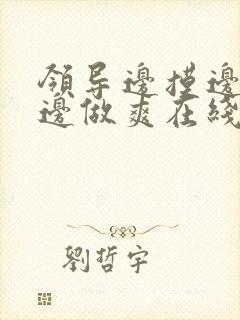 領导邊摸邊
邊做爽在綫
劉哲宇